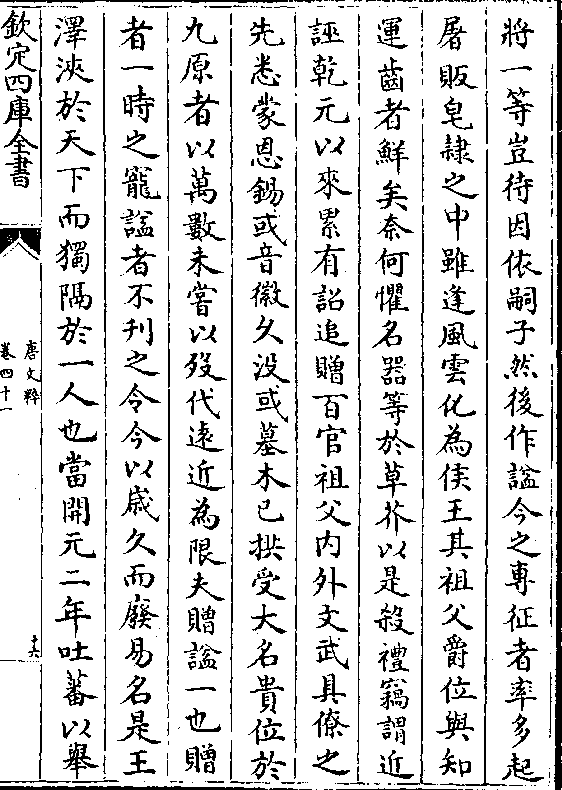 將一等豈待因依嗣子然後作諡今之專征者率多起
屠販皂隸之中雖逢風雲化為侯王其祖父爵位與知
運齒者鮮矣奈何懼名器等於草芥以是殺禮竊謂近
誣乾元以來累有詔追贈百官祖父内外文武具僚之
先悉蒙恩錫或音徽久没或墓木已拱受大名貴位於
九原者以萬數未嘗以歿代遠近為限夫贈諡一也贈
者一時之寵諡者不刋之令今以歳久而廢易名是王
澤浹於天下而獨隔於一人也當開元二年吐蕃以舉
欽定四庫全書
唐文粹
卷四十一
十六